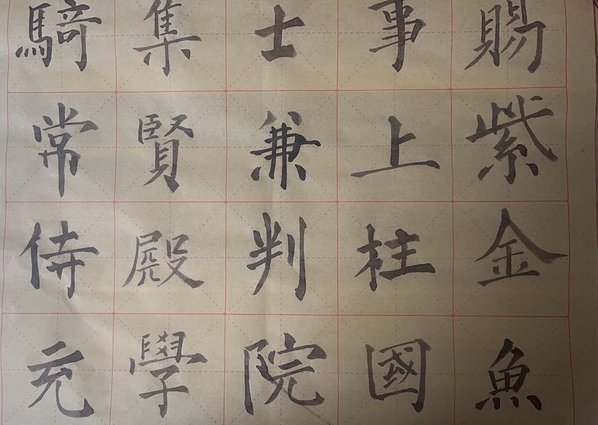 騎常侍充
集賢殿學
士兼判院
事上柱國
賜紫金魚